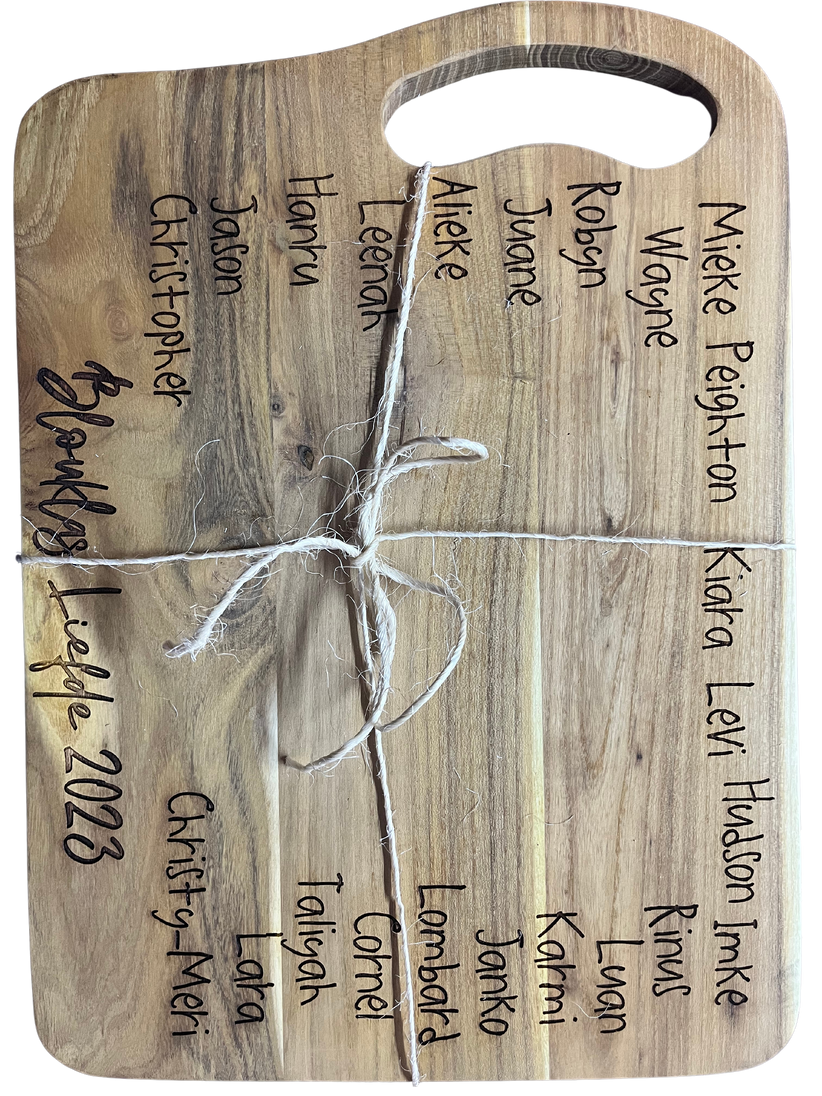 Mieke Peighton Kiara Levi Hudson Imke
Wayne
Rinus
Robyn
Luan
Juane
Karmi
Janko
Alieke
Lombard
Leenah
Cornel
Hanru
Taliyah
Jason
Lara
Christopher
Christy-Meri
Blouklas Liefde 2023